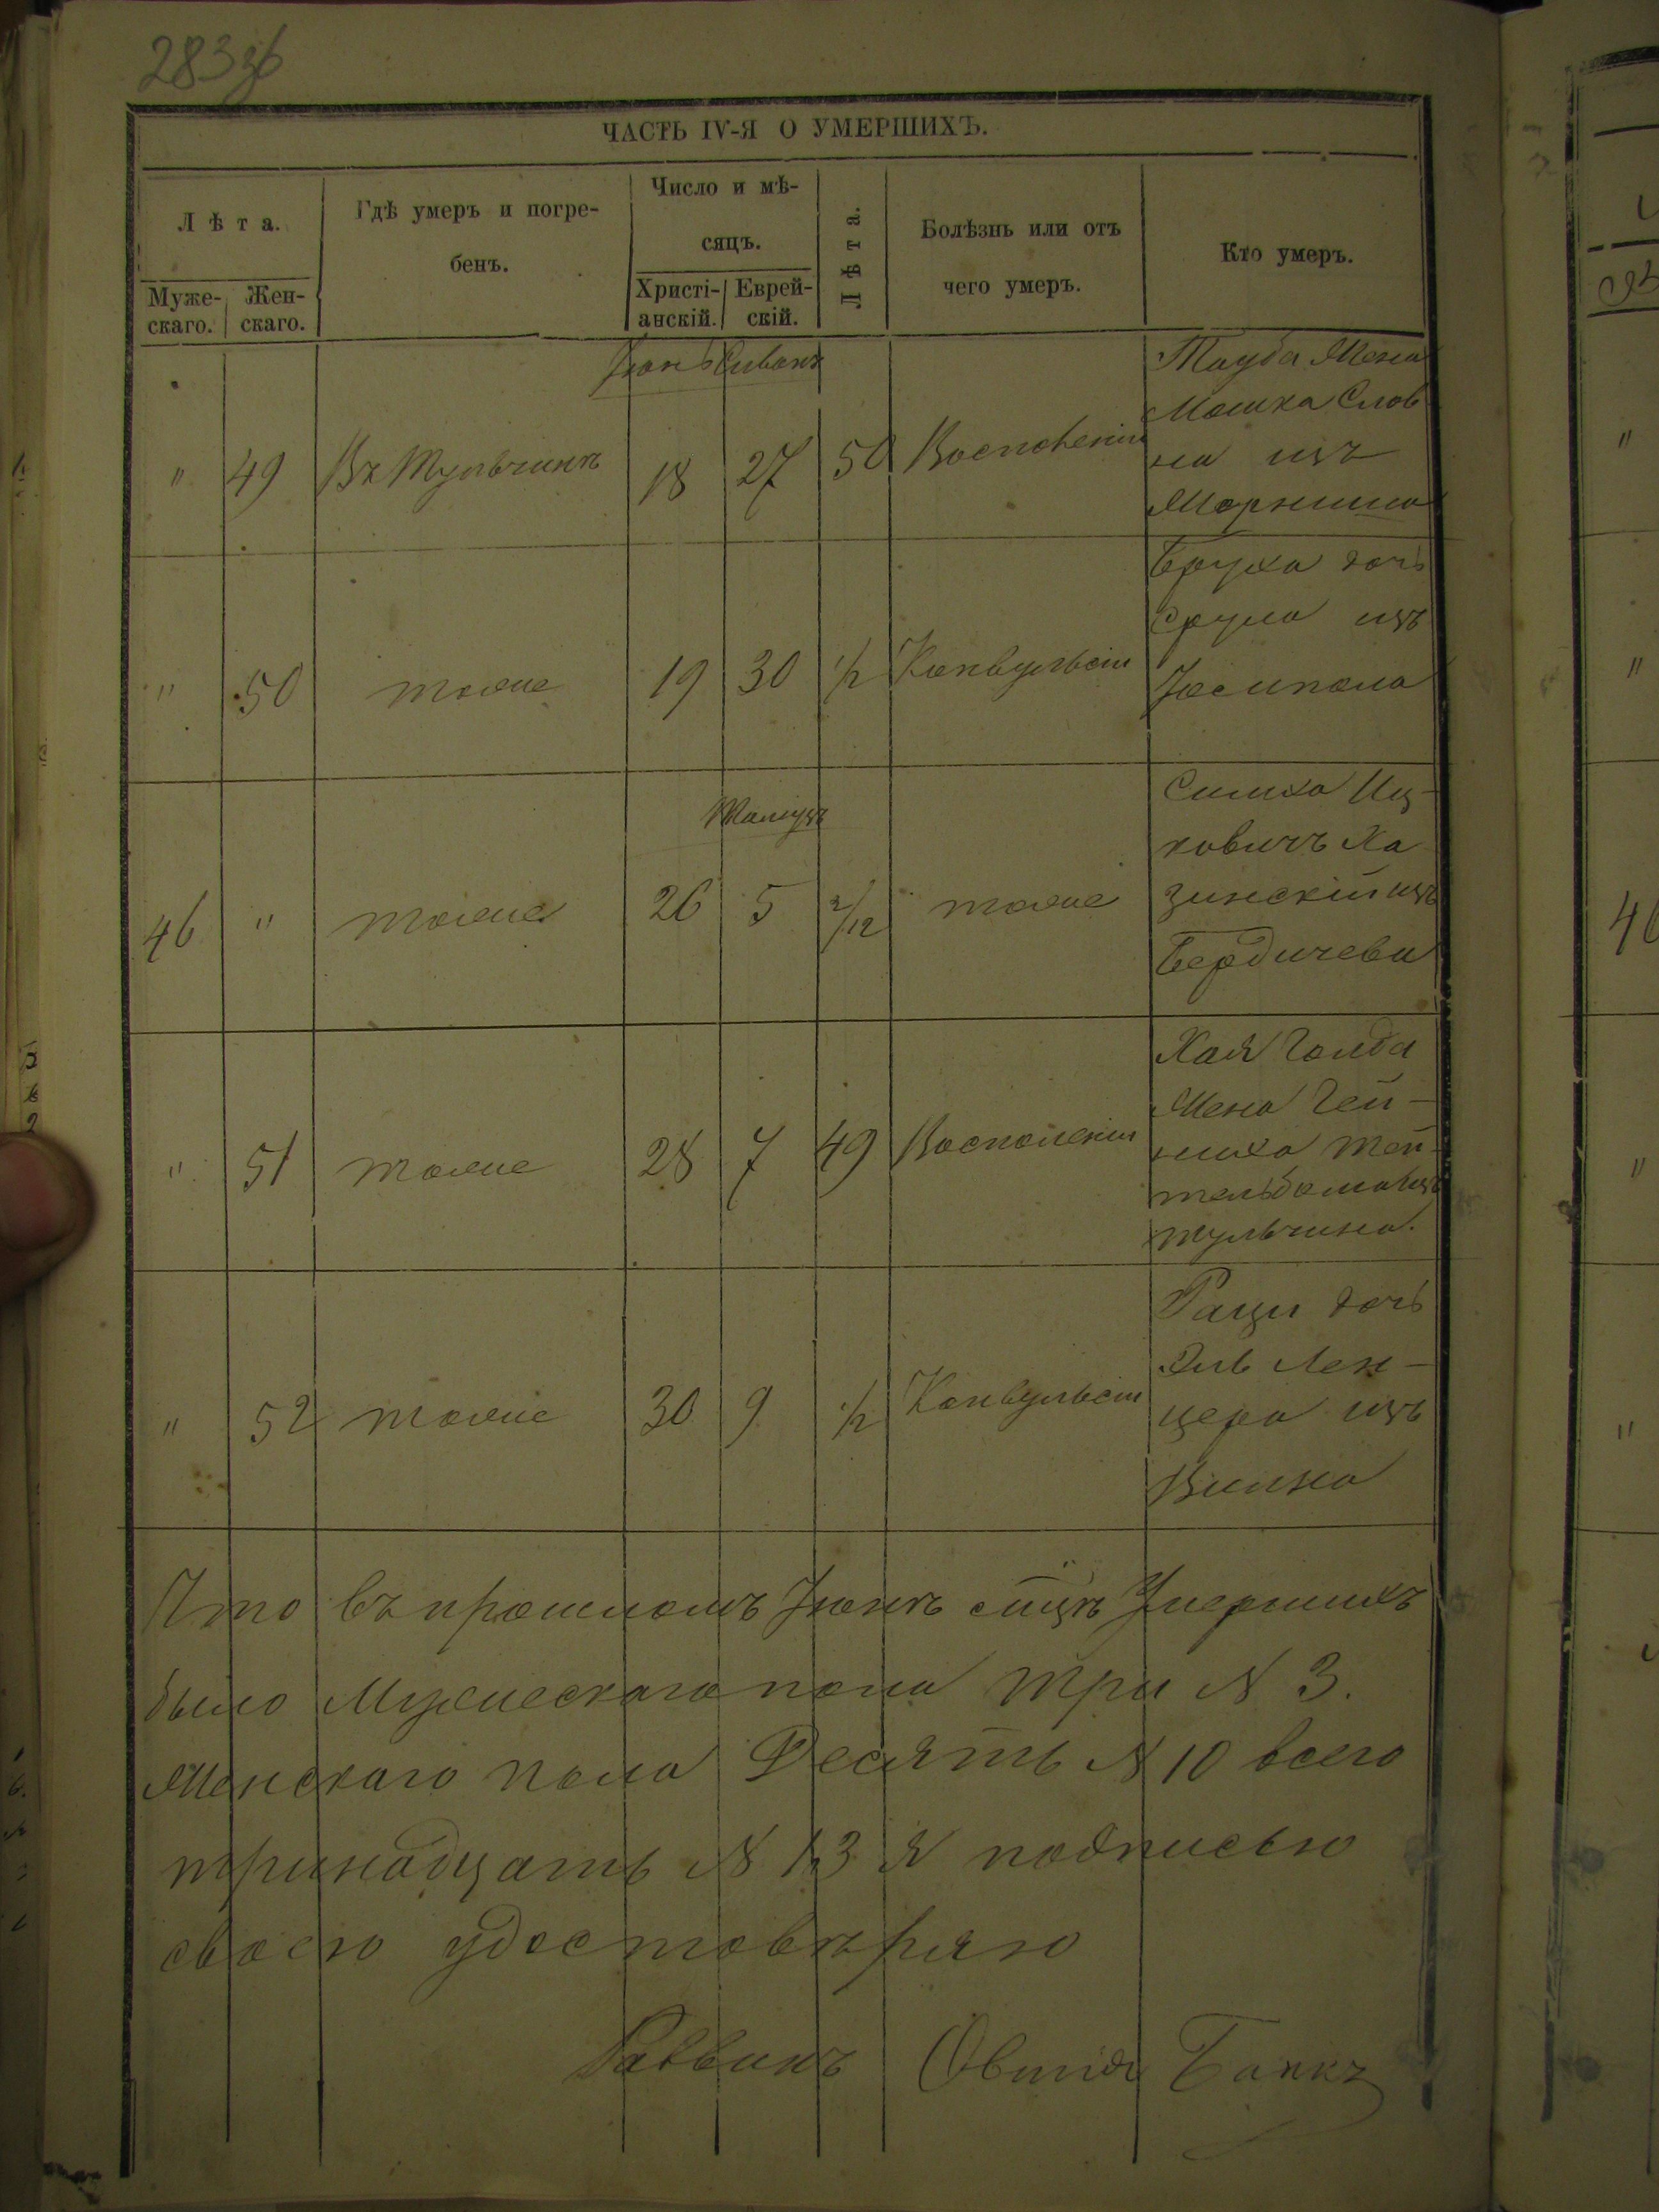 283 об
ЧАСТЬ IV-Я О УМЕРШИХЪ.
Лѣта.
Муже-
скаго.
Жен-
скаго.
Гдѣ умеръ и погре-
бенъ.
Число и мѣ-
сяцъ.
Христі-
анскій.
Еврей-
скій.
Лѣта.
Болѣзнь или отъ
чего умеръ.
Кто умеръ.
Іюнь Сивонъ
" 49 Въ Тульчинѣ 18 27 50 Восполеніи
Тауба Жена
Мошка Слов
на изъ
" 50 тоже 19 30 1/2 Конвульсіи
Бруха дочь
Срула изъ
Іосипола
Тамузъ
46 " тоже 26 5 2/12 тоже
Симха Иц-
ковичъ Ха
зинскій изъ
Бердичева
" 51 тоже 28 7 49 Восполеніи
Хая Голда
Жена Гей-
ниха Тей-
тельбома изъ
Тульчина.
" 52 тоже 30 9 1/2 Конвульсіи
Рации дочь
Эль Лен-
цера изъ
Вильна
Что въ прошломъ Іюнѣ мѣцѣ Умершихъ
было Мужескаго пола три № 3.
Женскаго пола Десять № 10 всего
тринадцать № 13 я подписью
своею удостовѣряю
Раввинъ Овшія Банкъ